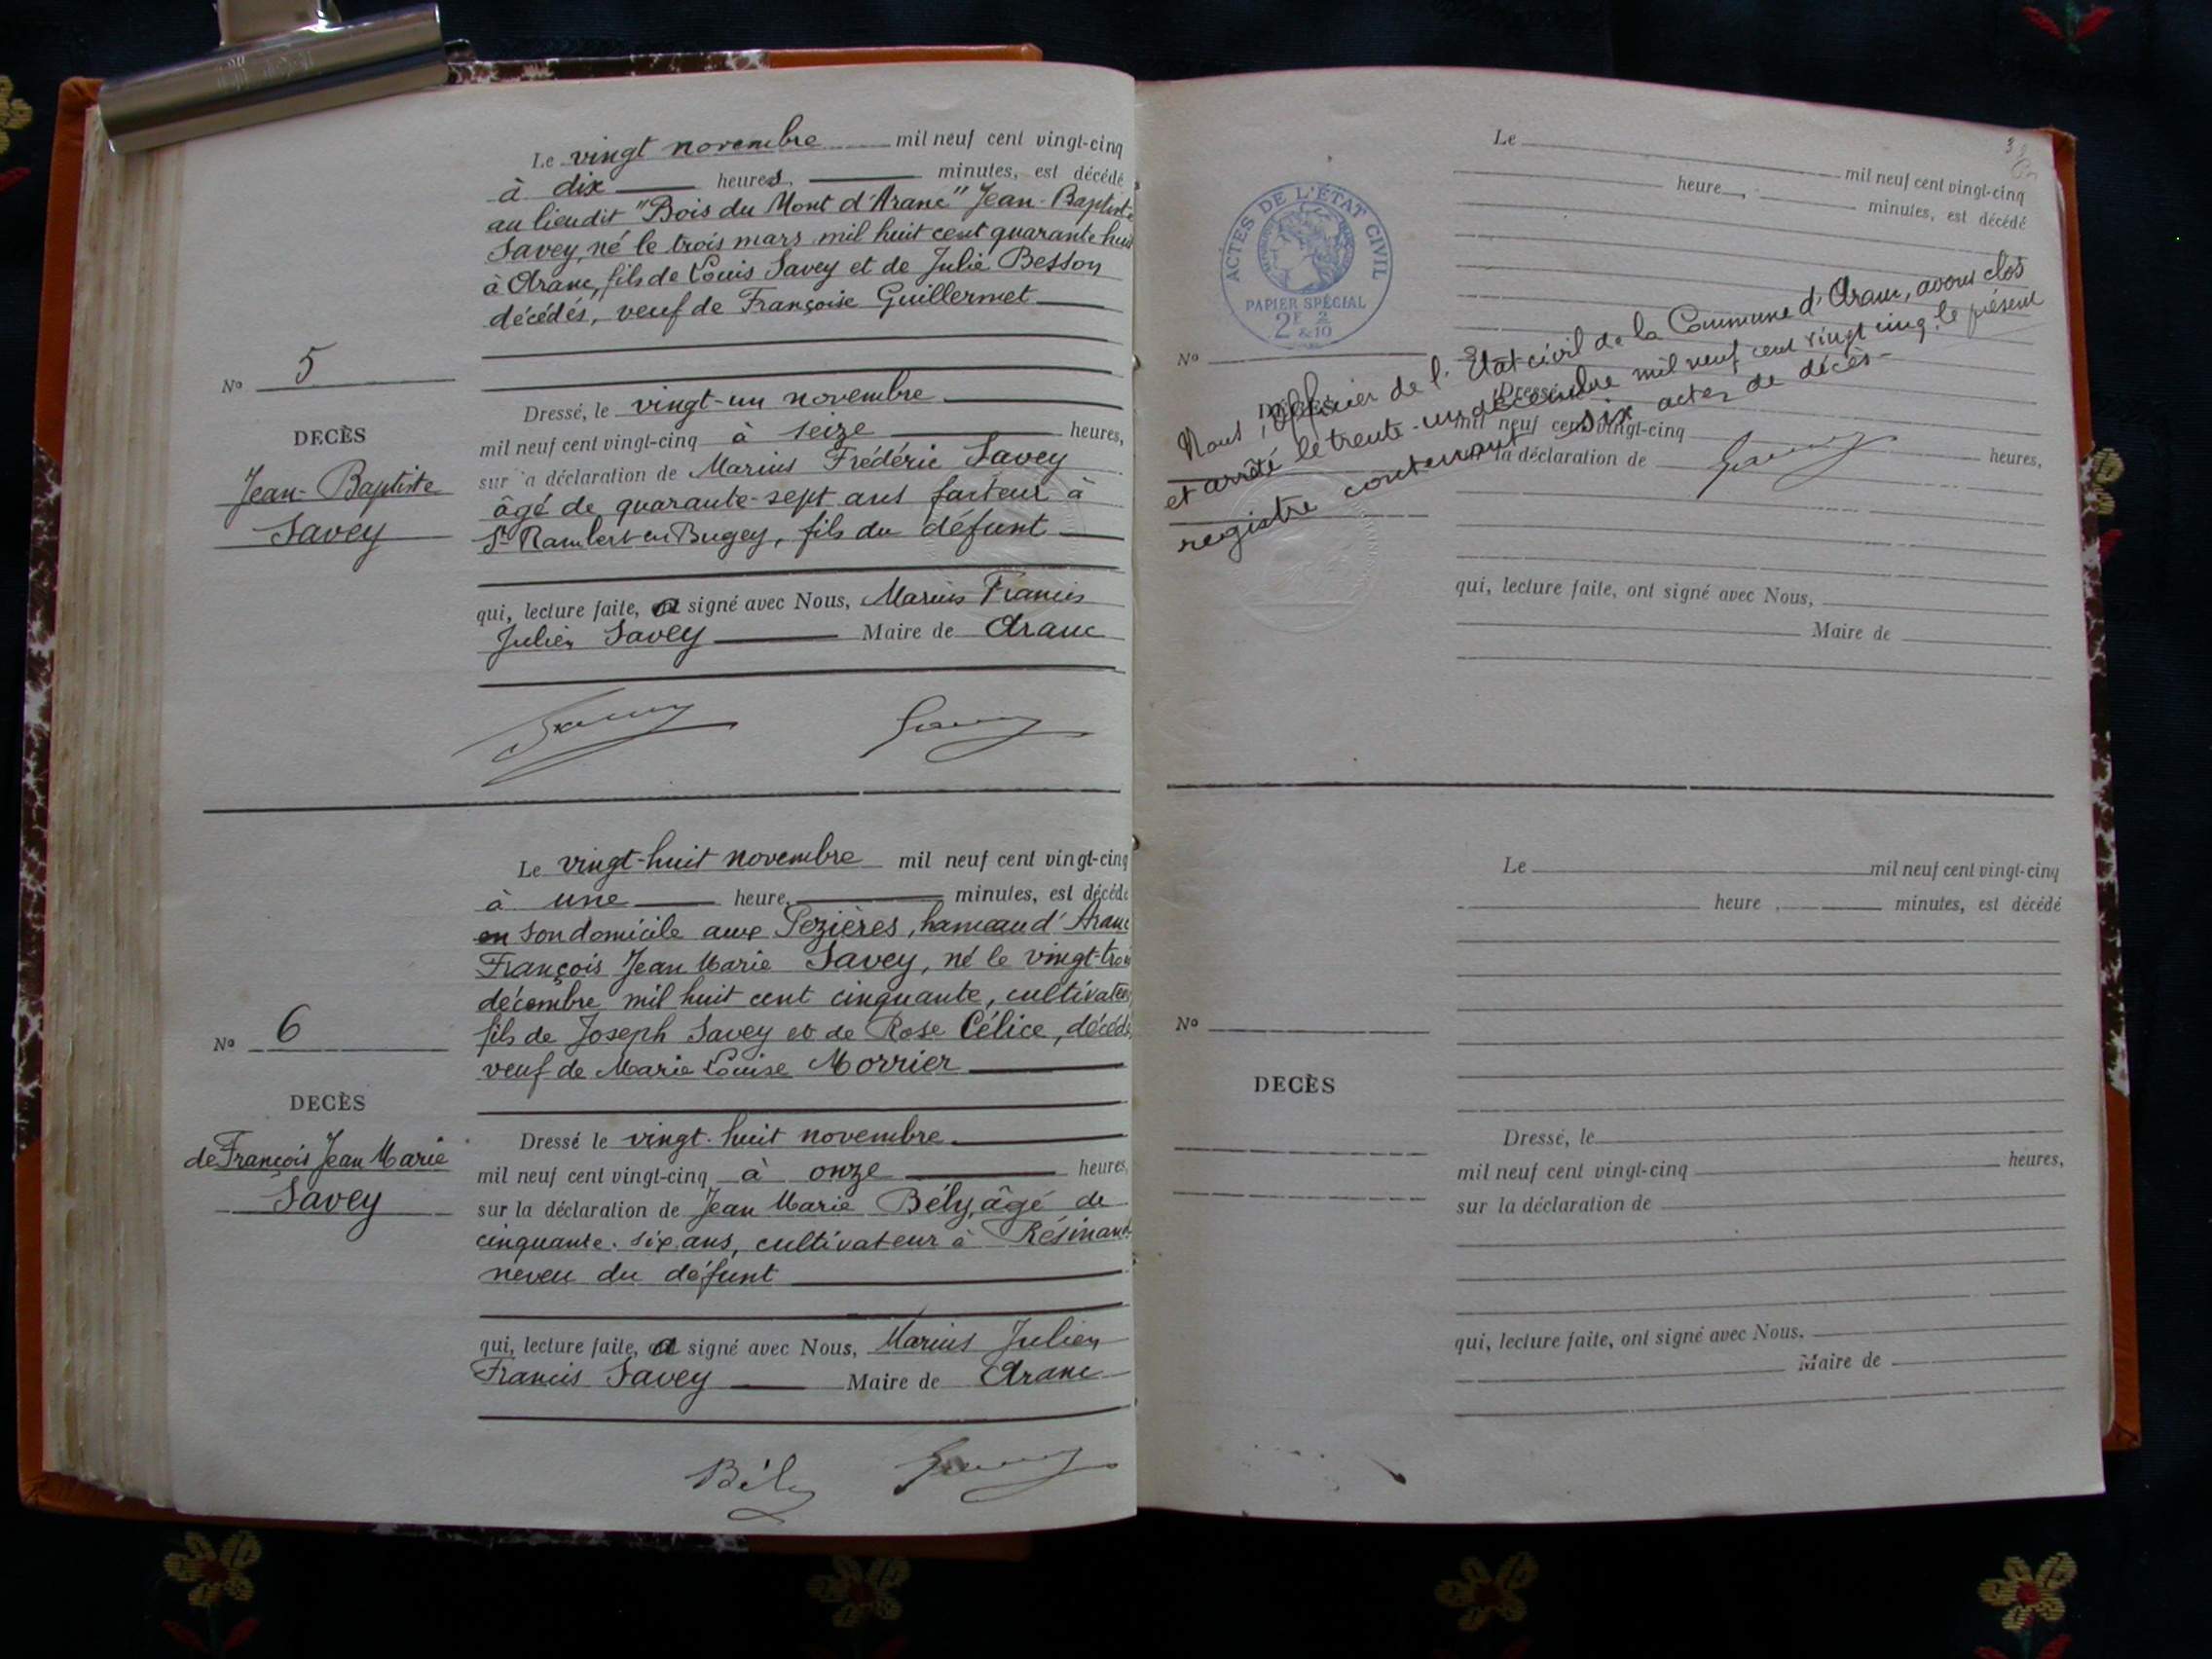 Le vingt novembre mil neuf cent vingt-cinq
à dix heures, minutes, est décédé
au lieudit "Bois du Mont d'Aranc" Jean-Baptiste
Savey, né le trois mars mil huit cent quarante huit
à Aranc, fils de Louis Savey et de Julie Besson
décédés, veuf de Françoise Guillermet
No 5
DECÈS
Jean-Baptiste
Savey
Dressé, le vingt-un novembre
mil neuf cent vingt-cinq à seize heures,
sur la déclaration de Marius Frédéric Savey
âgé de quarante-sept ans facteur à
St Rambert en Bugey, fils du défunt
qui, lecture faite, a signé avec Nous, Marius Francis
Julien Savey Maire de Aranc
Le vingt-huit novembre mil neuf cent vingt-cinq
à une heure, minutes, est décédé
en son domicile aux Pezières, hameau d'Aranc
François Jean Marie Savey, né le vingt-trois
décembre mil huit cent cinquante, cultivateur
fils de Joseph Savey et de Rose Célice, décédés
veuf de Marie Louise Morrier
No 6
DECÈS
de François Jean Marie
Savey
Dressé le vingt-huit novembre
mil neuf cent vingt-cinq à onze heures,
sur la déclaration de Jean Marie Bély, âgé de
cinquante-six ans, cultivateur à Résinand
neveu du défunt
qui, lecture faite, a signé avec Nous, Marius Julien
Francis Savey Maire de Aranc
Bély
ACTES DE L'ÉTAT CIVIL
PAPIER SPÉCIAL
2F 2
&10
Le mil neuf cent vingt-cinq
heure, minutes, est décédé
No
DECÈS
Nous, Officier de l'Etat civil de la Commune d'Aranc, avons clos
et arrêté le trente-un décembre mil neuf cent vingt cinq, le présent
registre contenant six actes de décès-
Dressé, le
mil neuf cent vingt-cinq heures,
la déclaration de
qui, lecture faite, ont signé avec Nous,
Maire de
Le mil neuf cent vingt-cinq
heure, minutes, est décédé
No
DECÈS
Dressé, le
mil neuf cent vingt-cinq heures,
sur la déclaration de
qui, lecture faite, ont signé avec Nous,
Maire de